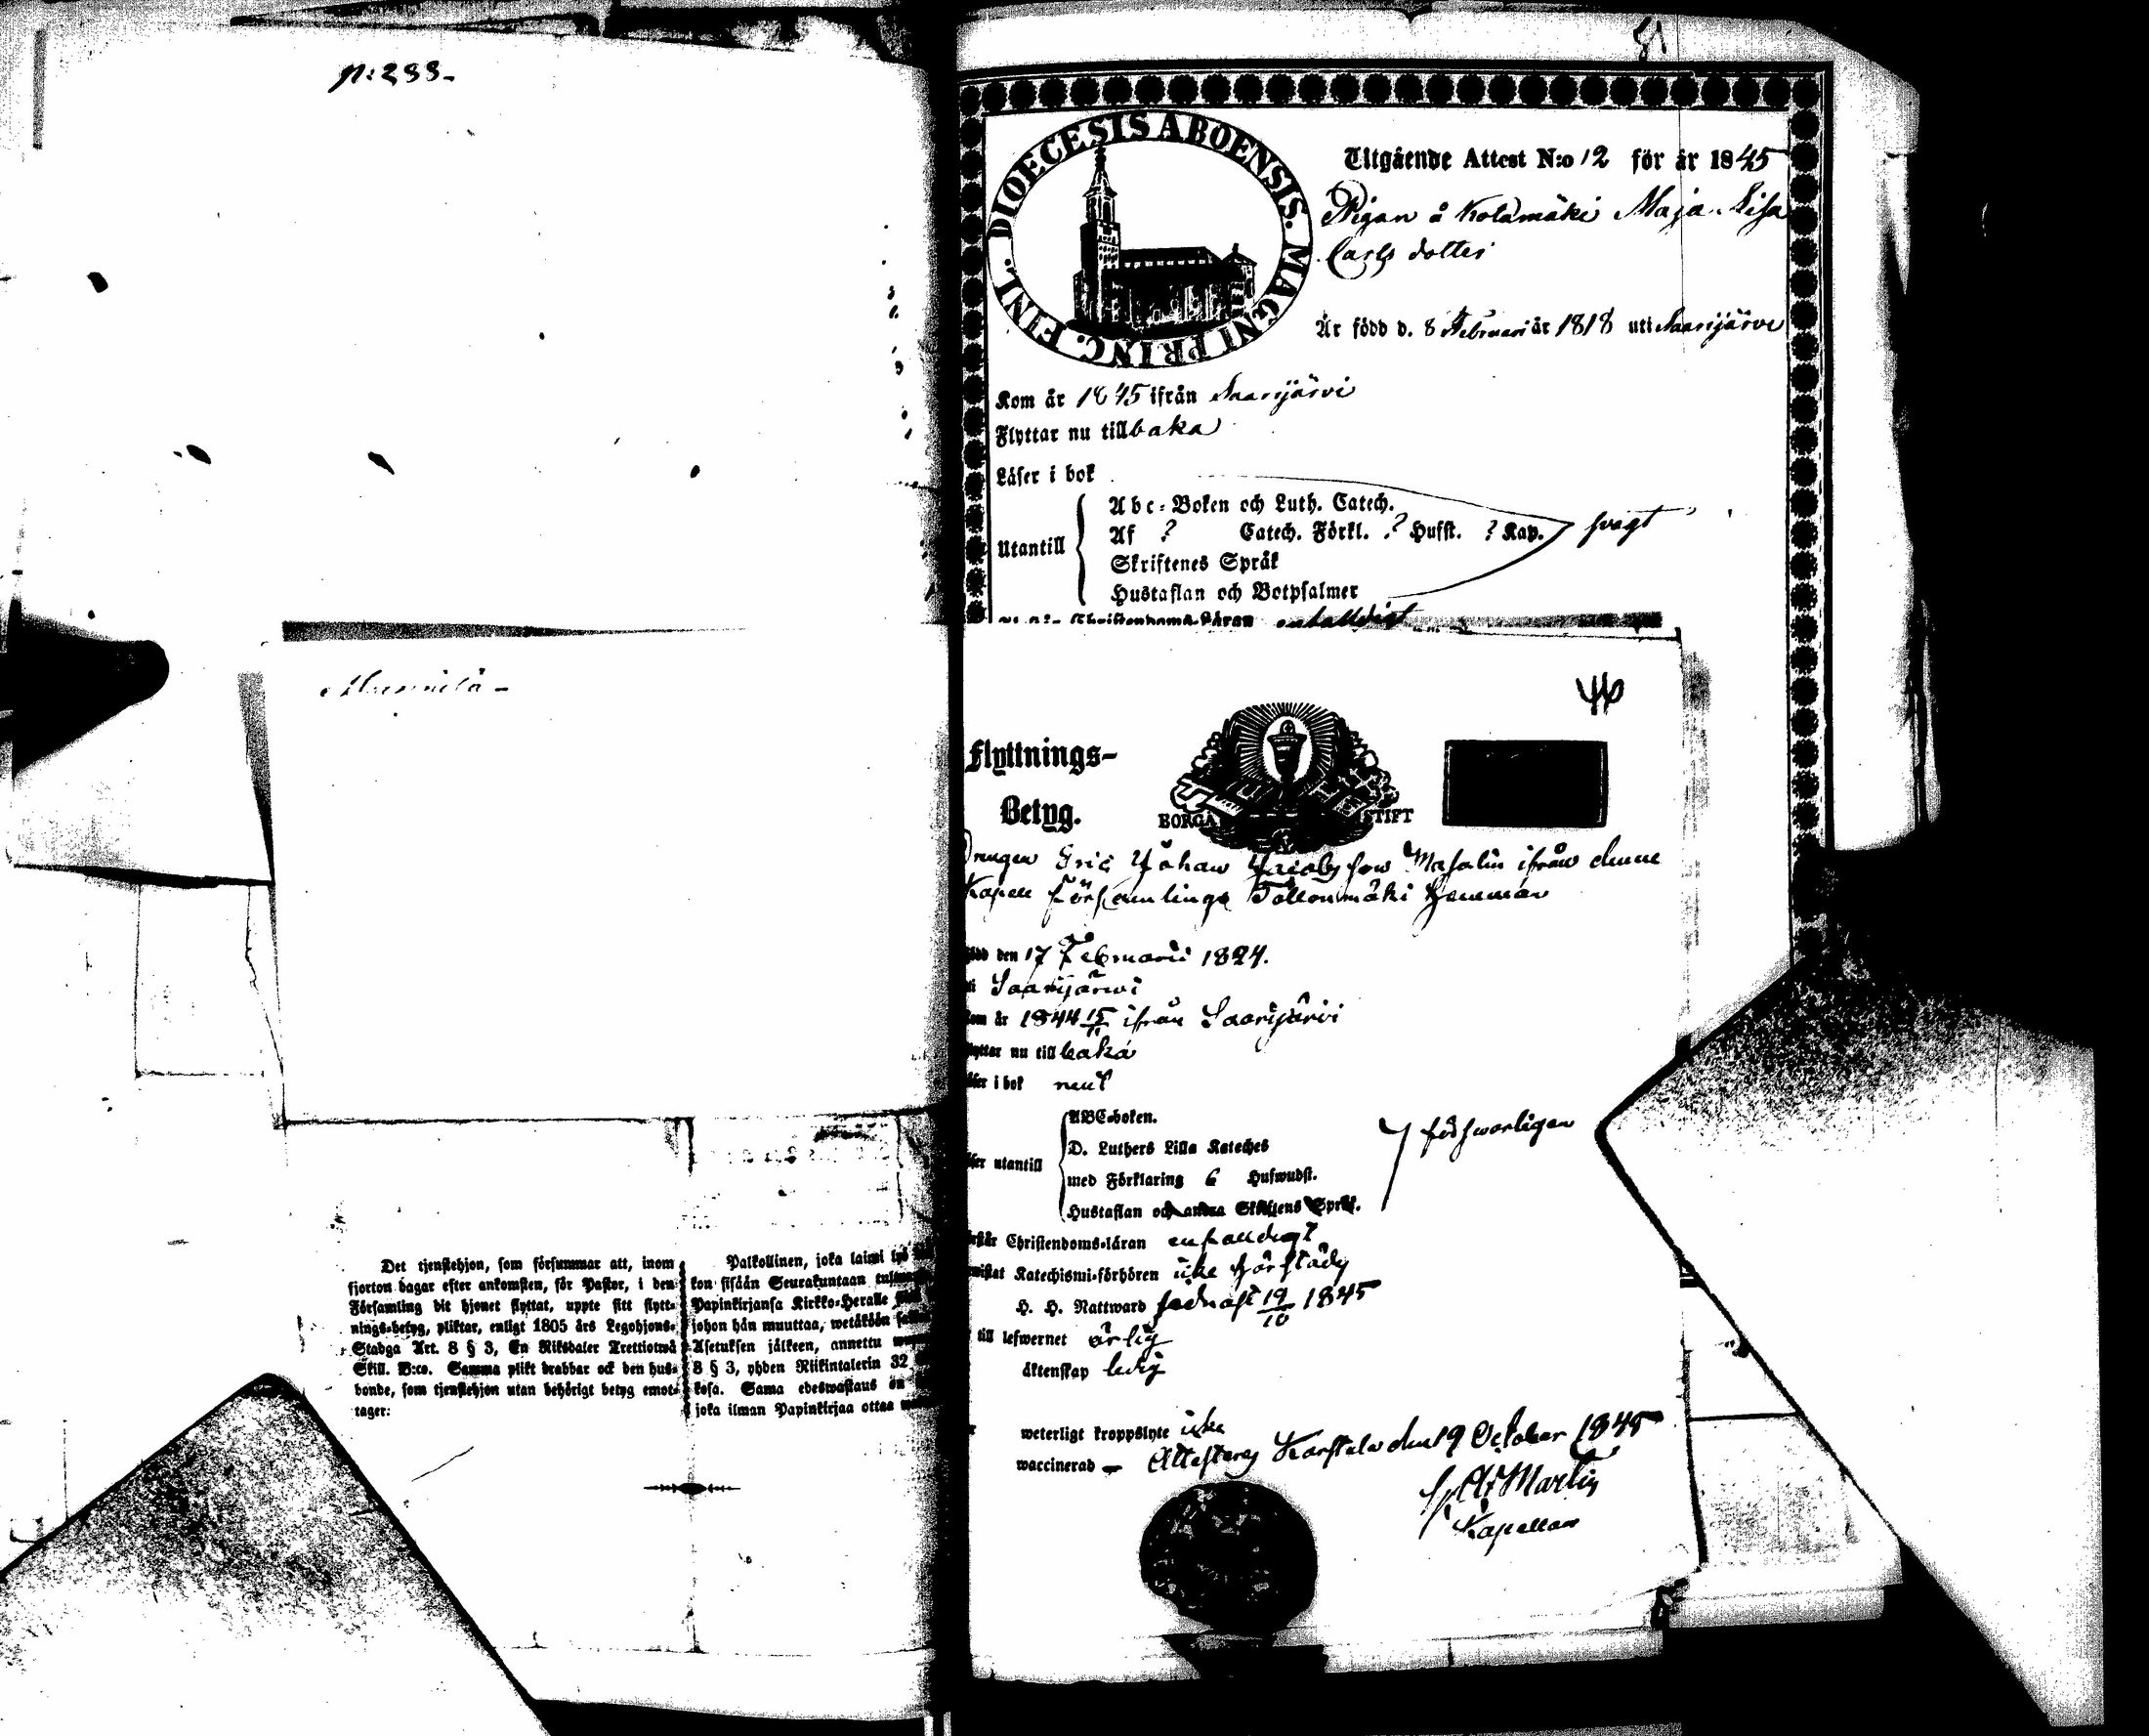 n:233.
Mannila
Det tjenstehjon, som försummar att, inom
fjorton dagar efter ankomsten, för Pastor, i den
Församling dit hjonet flyttat, uppte sitt flytt-
nings-betyg, pliktar, enligt 1805 års Legohjons-
Stadga Art. 8 § 3, En Riksdaler Trettiotwå
Skill. B:co. Samma plikt drabbar ock den hus-
bonde, som tjenstehjon utan behörigt betyg emot-
tager:
Palkollinen, joka laimi
kon sisään Seurakuntaan
Papinkirjansa Kirkko-Heralle
johon hän muuttaa, wetäköön
Asetuksen jälkeen, annettu
8 § 3, yhden Riikintalerin 32
kosa. Sama edeswastaus on
joka ilman Papinkirjaa ottaa
51
DIOECESIS ABOENSIS. MAGNI PRINC. FINL.
Utgående Attest N:o 12 för år 1845
Pigan å Kolamäki Maja Lisa
Carls dotter
Är född d. 8 Februari år 1818 uti Saarijärvi
Kom år 1845 ifrån Saarijärvi
Flyttar nu tillbaka
Läser i bok
Utantill
Abc-Boken och Luth. Catech.
Af ? Catech. Förkl. ? Hufst. ? Kap. svagt
Skriftenes Språk
Hustaflan och Botpsalmer
Christendoms-Läran enfalldigt
46
Flyttnings-
Betyg.
BORGÅ STIFT
Drängen Eric Johan Jacobsson Masalin ifrån denne
Kapell Församlings Tollonmäki hemman
född den 17 Februarii 1824.
Saarijärwi
Kom år 1844 15/11 ifrån Saarijärvi
flyttar nu till baka
läser i bok nent
läser utantill
ABC-boken.
D. Luthers Lilla Kateches
med Förklaring 6 Hufwudst.
Hustaflan och andra Skriftens Språk.
försvarligen
förstår Christendoms-läran enfaldigt
bewistat Katechismi-förhören icke här städs
H. H. Nattward sednast 19/10 1845
till lefwernet ärlig
äktenskap ledig
weterligt kroppslyte icke
waccinerad – Attesteras Karstula den 19 October 1845
Martin
Kapellan